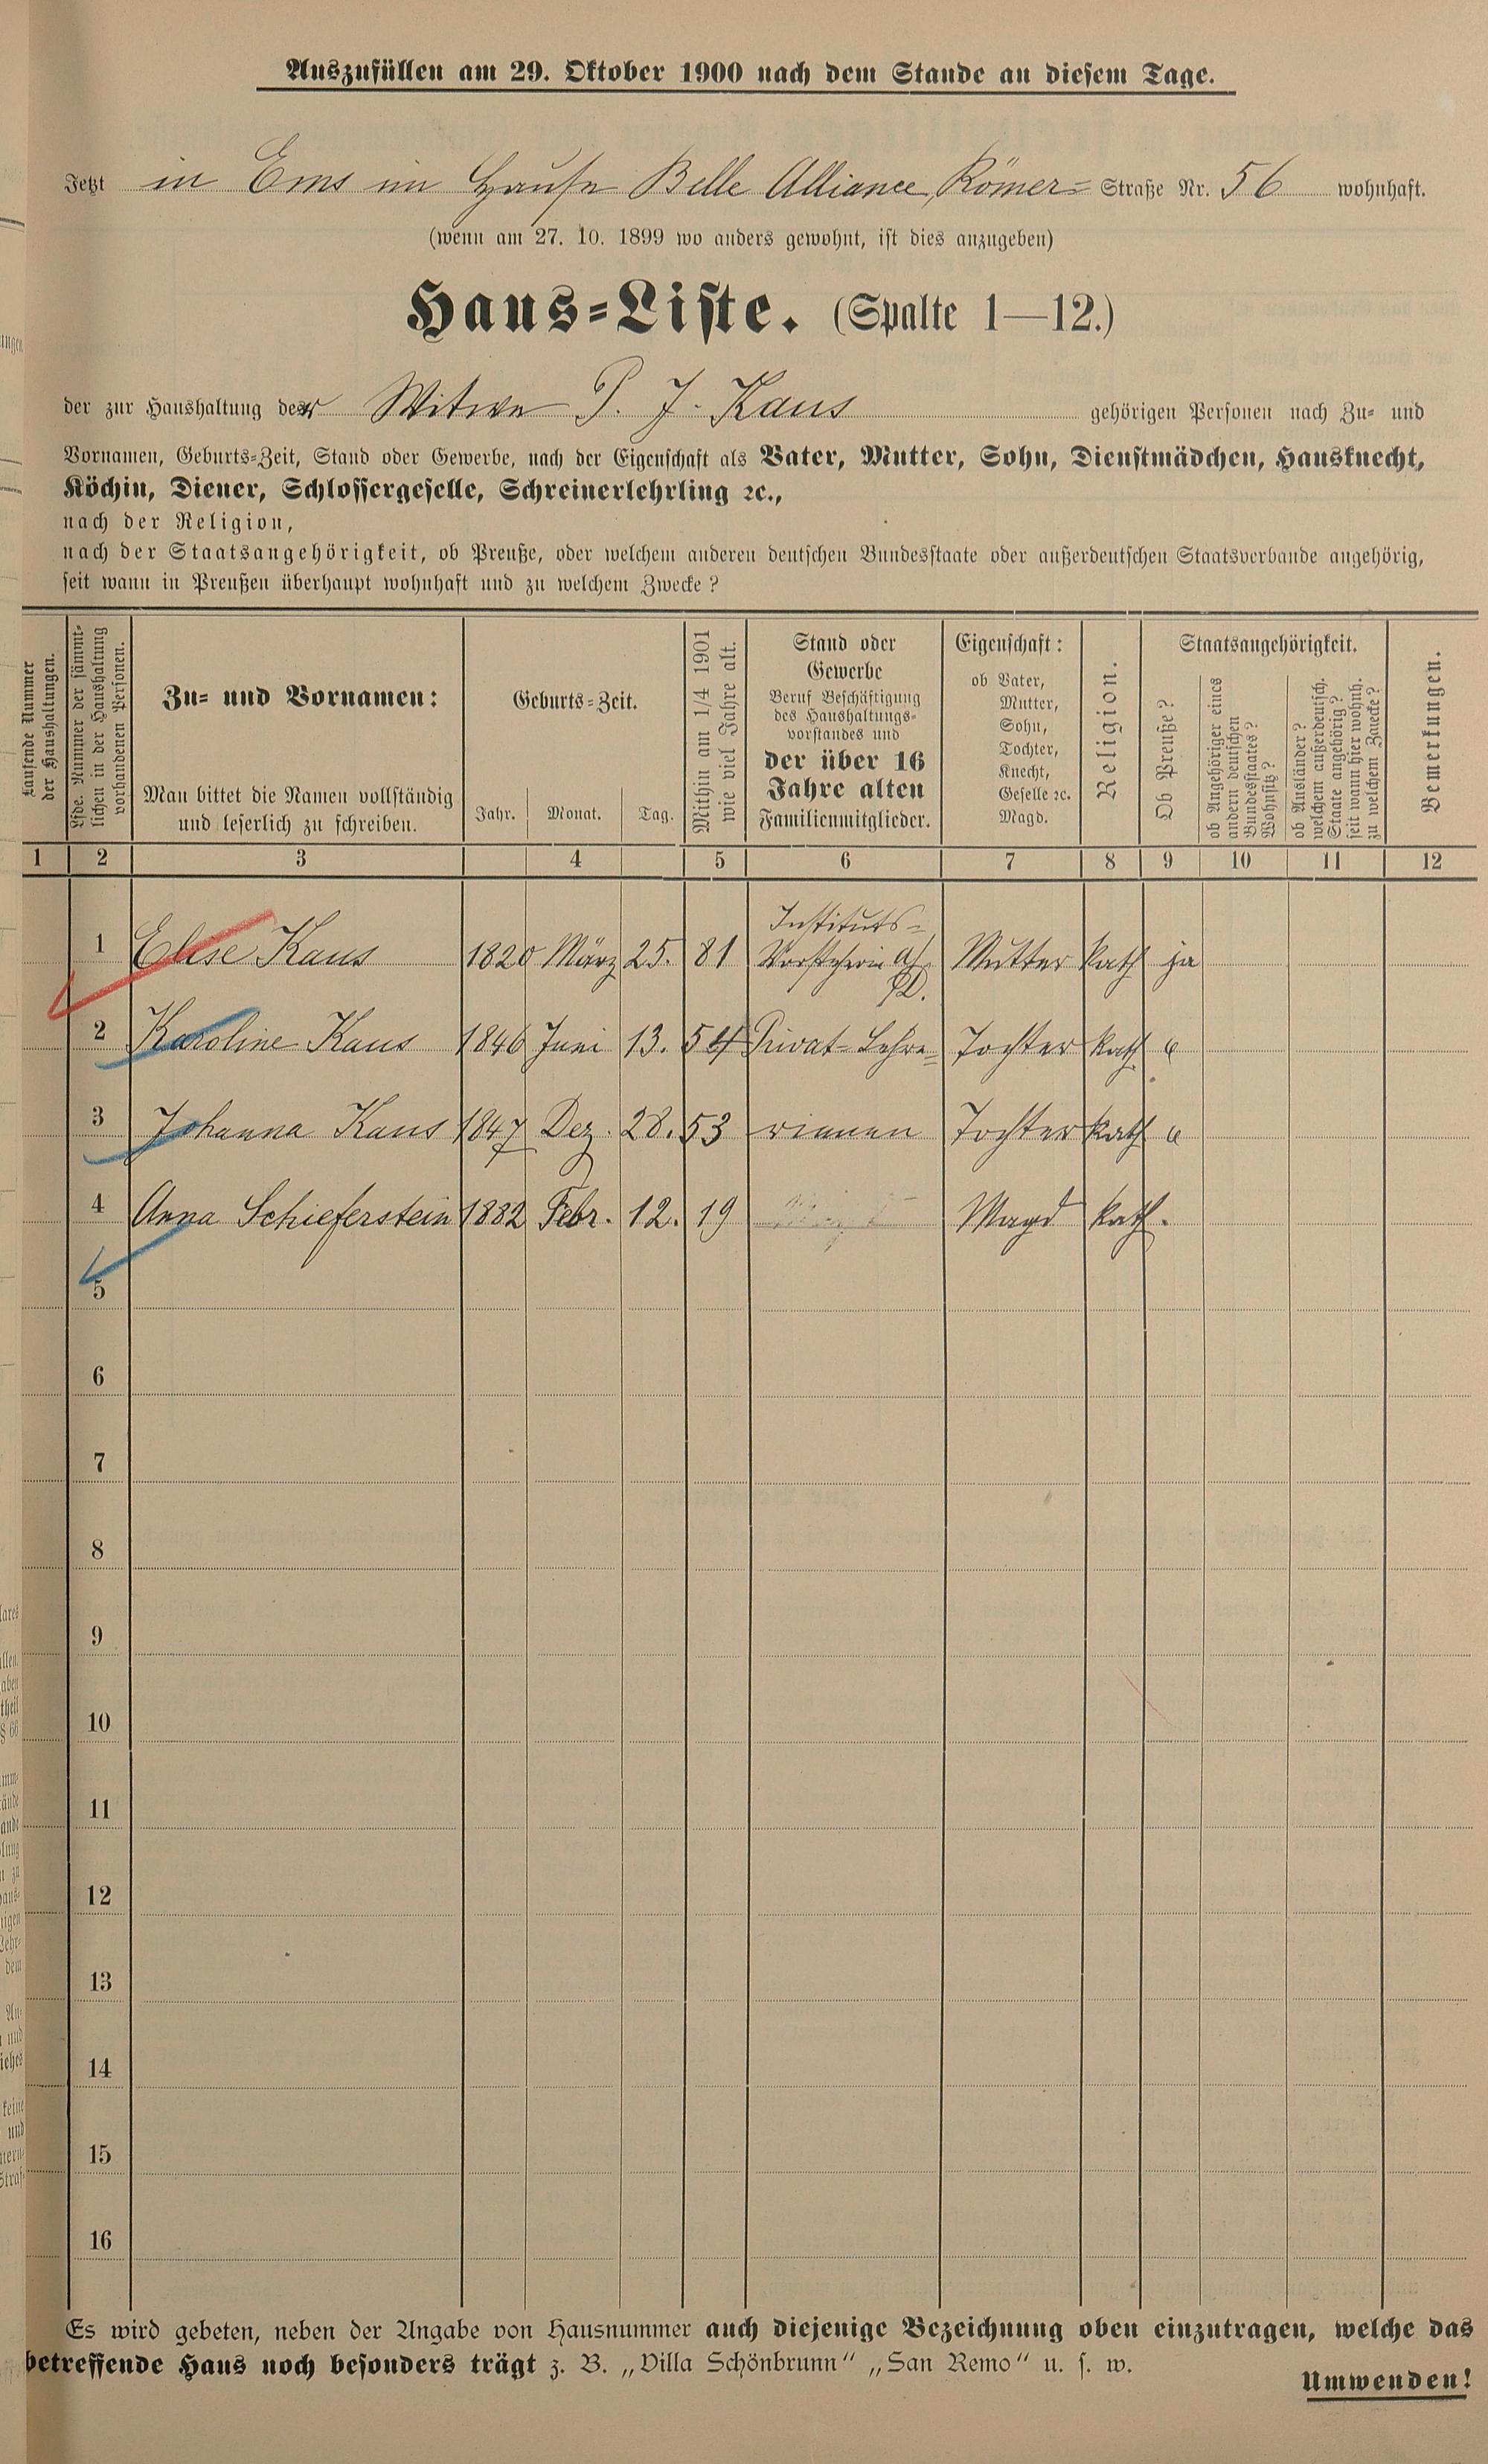 Auszufüllen am 29. Oktober 1900 nach dem Stande an diesem Tage.
Jetzt in Ems im Hause Belle Alliance, Römer= Straße Nr. 56 wohnhaft.
(wenn am 27. 10. 1899 wo anders gewohnt, ist dies anzugeben)
Haus=Liste. (Spalte 1—12.)
der zur Haushaltung der Witwe P. J. Kaus gehörigen Personen nach Zu= und
Vornamen, Geburts=Zeit, Stand oder Gewerbe, nach der Eigenschaft als Vater, Mutter, Sohn, Dienstmädchen, Hausknecht,
Köchin, Diener, Schlossergeselle, Schreinerlehrling ꝛc.,
nach der Religion,
nach der Staatsangehörigkeit, ob Preuße, oder welchem anderen deutschen Bundesstaate oder außerdeutschen Staatsverbande angehörig,
seit wann in Preußen überhaupt wohnhaft und zu welchem Zwecke?
Laufende Nummer
der Haushaltungen.
Lfde. Nummer der sämmt=
lichen in der Haushaltung
vorhandenen Personen.
Zu= und Vornamen:
Man bittet die Namen vollständig
und leserlich zu schreiben.
Geburts=Zeit.
Jahr. Monat. Tag.
Mithin am 1/4 1901
wie viel Jahre alt.
Stand oder
Gewerbe
Beruf Beschäftigung
des Haushaltungs=
vorstandes und
der über 16
Jahre alten
Familienmitglieder.
Eigenschaft:
ob Vater,
Mutter,
Sohn,
Tochter,
Knecht,
Geselle ꝛc.
Magd.
Religion.
Staatsangehörigkeit.
Ob Preuße?
ob Angehöriger eines
andern deutschen
Bundesstaates?
Wohnsitz?
ob Ausländer?
welchem außerdeutsch.
Staate angehörig?
seit wann hier wohnh.
zu welchem Zwecke?
Bemerkungen.
1 2 3 4 5 6 7 8 9 10 11 12
Instituts=
1 Elise Kaus 1820 März 25. 81 Vorsteherin a/ Mutter kath ja
D.
2 Karoline Kaus 1846 Juni 13. 54 Privat=Lehre= Tochter kath "
3 Johanna Kaus 1847 Dez. 28. 53 rinnen Tochter kath "
4 Anna Schieferstein 1882 Febr. 12. 19 Magd kath.
5
6
7
8
9
10
11
12
13
14
15
16
Es wird gebeten, neben der Angabe von Hausnummer auch diejenige Bezeichnung oben einzutragen, welche das
betreffende Haus noch besonders trägt z. B. „Villa Schönbrunn“ „San Remo“ u. s. w.
Umwenden!